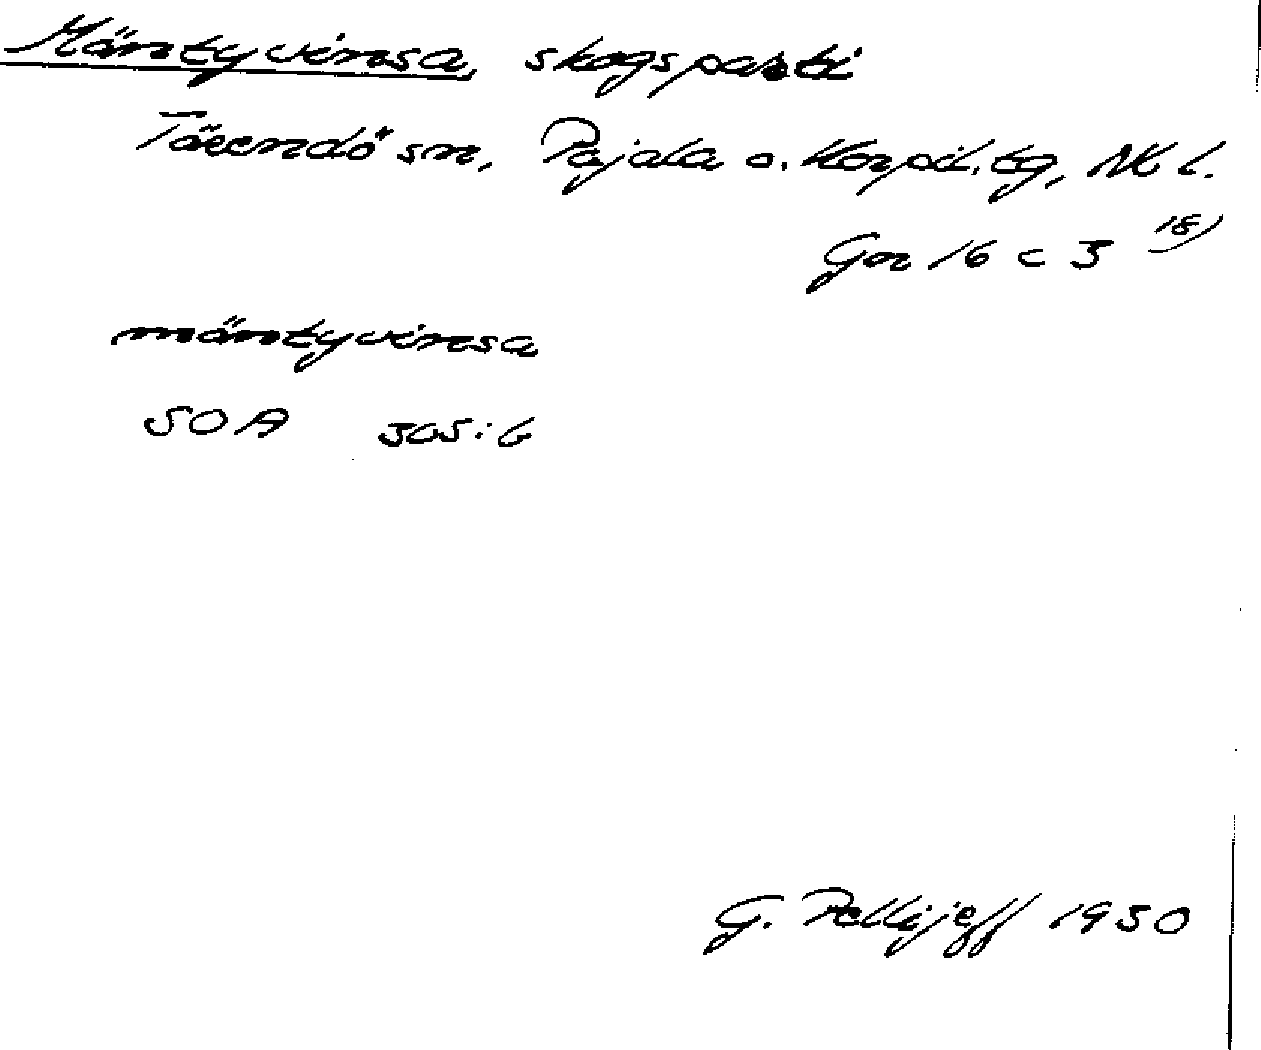 Mäntyvinsa, skogsparti
Tärendö sn, Pajala o. Korpil. tg, Nb l.
Gnr 16 c 3 18)
mäntyvinsa
SOA 305:6
G. Pellijeff 1950